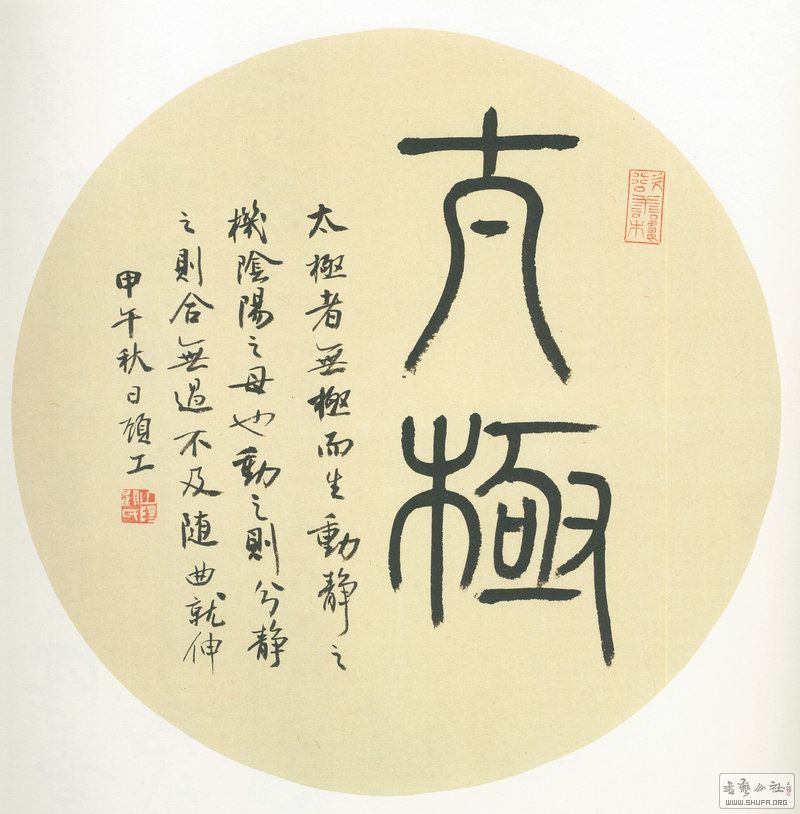 太極
太極者無極而生動靜之
機陰陽之母也動之則分靜
之則合無過不及随曲就伸
甲午秋日頑工
WWW.SHUFA.ORG